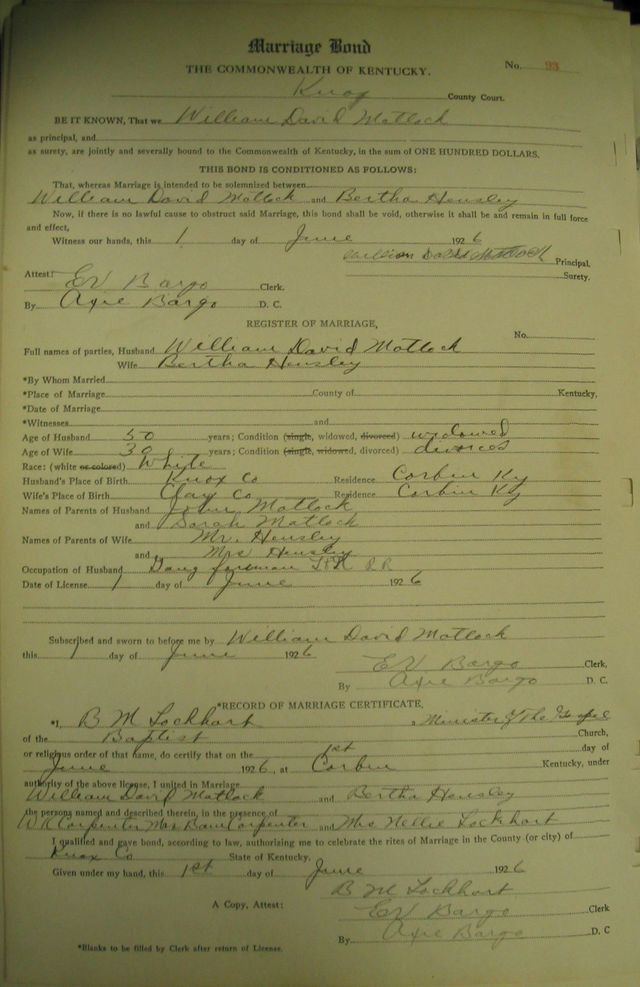 Marriage Bond
THE COMMONWEALTH OF KENTUCKY. No. 93
Knox County Court.
BE IT KNOWN, That we William David Matlock
as principal, and
as surety, are jointly and severally bound to the Commonwealth of Kentucky, in the sum of ONE HUNDRED DOLLARS.
THIS BOND IS CONDITIONED AS FOLLOWS:
That, whereas Marriage is intended to be solemnized between
William David Matlock and Bertha Hensley
Now, if there is no lawful cause to obstruct said Marriage, this bond shall be void, otherwise it shall be and remain in full force
and effect,
Witness our hands, this 1 day of June 1926
William David Matlock Principal,
Attest: Surety.
EV Bargo Clerk.
By Axie Bargo D. C.
REGISTER OF MARRIAGE,
No.
Full names of parties, Husband William David Matlock
Wife Bertha Hensley
*By Whom Married
*Place of Marriage County of Kentucky,
*Date of Marriage
*Witnesses and
Age of Husband 50 years; Condition (single, widowed, divorced) widowed
Age of Wife 30 years; Condition (single, widowed, divorced) divorced
Race: (white or colored) White
Husband's Place of Birth Knox Co Residence Corbin Ky
Wife's Place of Birth Clay Co Residence Corbin Ky
Names of Parents of Husband John Matlock
and Sarah Matlock
Names of Parents of Wife Mr. Hensley
and Mrs Hensley
Occupation of Husband Gang foreman L&N RR
Date of License 1 day of June 1926
Subscribed and sworn to before me by William David Matlock
this 1 day of June 1926
EV Bargo Clerk.
By Axie Bargo D. C.
*RECORD OF MARRIAGE CERTIFICATE,
*I, B M Lockhart a Minister of The Gospel
of the Baptist Church,
or religious order of that name, do certify that on the 1st day of
June 1926, at Corbin Kentucky, under
authority of the above license, I united in Marriage
William David Matlock and Bertha Hensley
the persons named and described therein, in the presence of
Carpenter Mrs Carpenter and Mrs Nellie Lockhart
I qualified and gave bond, according to law, authorizing me to celebrate the rites of Marriage in the County (or city) of
Knox Co State of Kentucky.
Given under my hand, this 1st day of June 1926
B M Lockhart
A Copy, Attest: EV Bargo Clerk
By Axie Bargo D. C
*Blanks to be filled by Clerk after return of License.